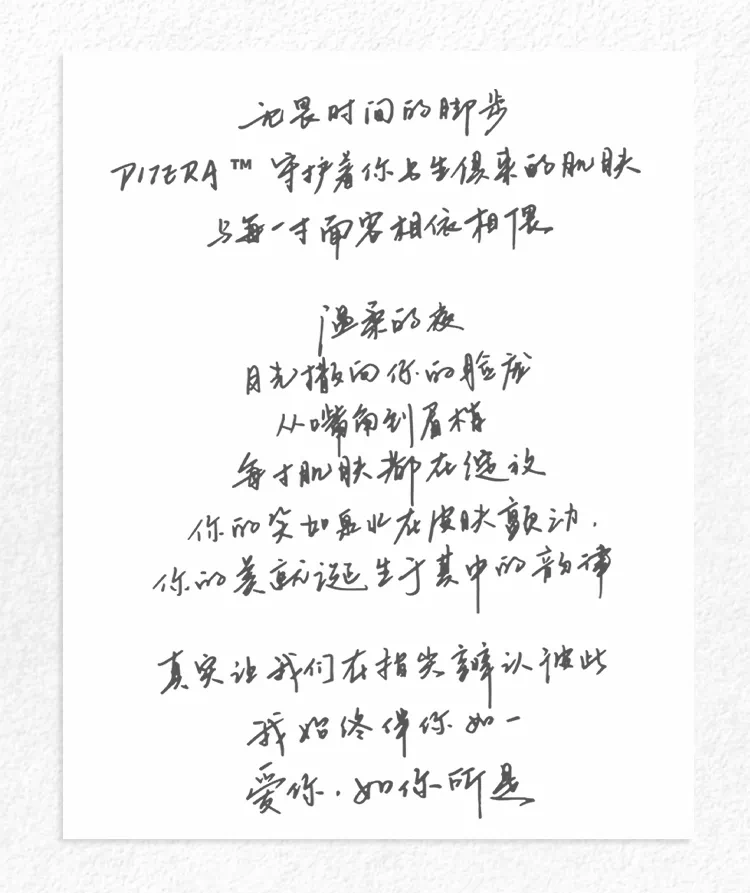 无畏时间的脚步
PITERA™ 守护着你与生俱来的肌肤
与每一寸面容相依相偎
温柔的夜
目光撒向你的脸庞
从嘴角到眉梢
每寸肌肤都在绽放
你的笑如泉水在皮肤颤动，
你的美就诞生于其中的韵律
真实让我们在指尖辨认彼此
我始终伴你如一
爱你，如你所是